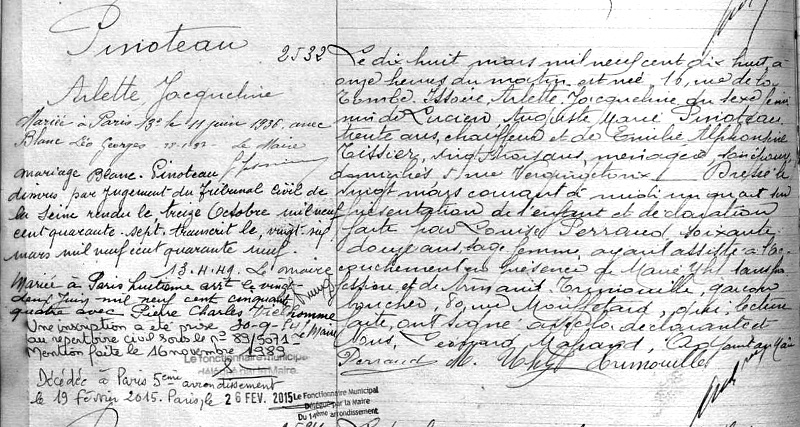 Pinoteau
Arlette Jacqueline
Mariée à Paris 13e le 11 juin 1936, avec
Blanc Léo Georges
Le Maire
mariage Blanc-Pinoteau
dissous par Jugement du Tribunal Civil de
la Seine rendu le treize Octobre mil neuf
cent quarante-sept, transcrit le, vingt-six
mars mil neuf cent quarante neuf
13.4.49. Le maire
Mariée à Paris huitième arrt le vingt-
deux Juin mil neuf cent cinquante
quatre avec Pierre Charles Vielhomme
30-9-54/ Le Maire
Une inscription a été prise
au repertoire civil sous le n° 89/5071
Mention faite le 16 novembre 1989
Le fonctionnaire municipal
délégué par la Maire.
Décédée à Paris 5ème
arrondissement
le 19 février 2015. Paris, le 26 FEV. 2015
Le Fonctionnaire Municipal
Délégué par la Maire
Du 14ème arrondissement
2532
Le dix huit mars mil neuf cent dix huit, à
onze heures du matin, est née 10, rue de la
Tombe-Issoire, Arlette Jacqueline, du sexe fémi
nin de Lucien Auguste Marie Pinoteau,
trente ans, chauffeur et de Emilie Alphonsine
Tissier, vingt trois ans, ménagère, son épouse,
domiciliés 5 rue Vercingétorix / Dressé le
vingt mars courant à midi un quart sur
présentation de l'enfant et déclaration
faite par Louise Perraud, soixante
douze ans, sage femme, ayant assisté à l'ac-
couchement en présence de Marie Uhl sans pro
fession et de Armand Trimouille, garçon
boucher, 80, rue Mouffetard, qui, lecture
faite, ont signé avec la déclarante et
Nous, Léopard Adjoint au Maire
Perraud M. Uhl Trimouille